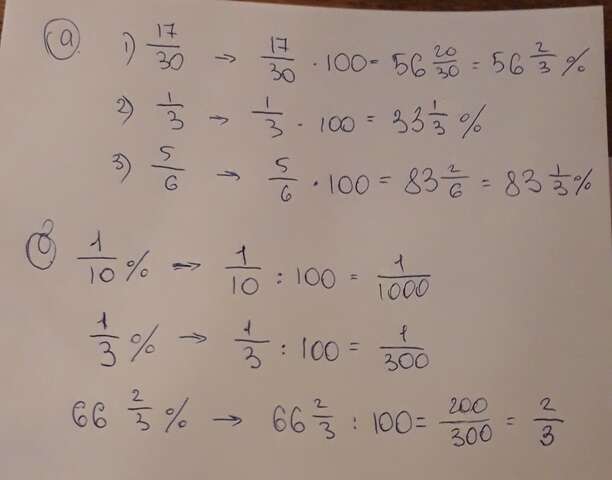 а 1) 17/30 → 17/30 · 100 = 56 20/30 = 56 2/3 %
2) 1/3 → 1/3 · 100 = 33 1/3 %
3) 5/6 → 5/6 · 100 = 83 2/6 = 83 1/3 %
б 1/10 % → 1/10 : 100 = 1/1000
1/3 % → 1/3 : 100 = 1/300
66 2/3 % → 66 2/3 : 100 = 200/300 = 2/3